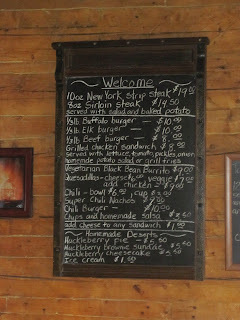 Welcome
10oz New York strip steak $19.50
8oz Sirloin steak $14.50
served with salad and baked potato
1/3lb Buffalo burger — $10.00
1/3lb Elk burger — $10.00
1/3lb Beef burger — $8.00
Grilled chicken sandwich $8.00
served with lettuce, tomato, pickles, onion,
homemade potato salad or grill fries
Vegetarian Black Bean Burrito $9.00
Quesadillas - cheese $6.00 veggie $7.00
add chicken - $9.00
Chili - bowl $6.00, cup
Super Chili Nachos
Chili Burger — $10.00
Chips and homemade salsa
add cheese to any sandwich $1.00
Homemade Desserts
Huckleberry pie — $5.50
Huckleberry brownie sundae $5.50
Huckleberry cheesecake $5.50
Ice cream $1.00